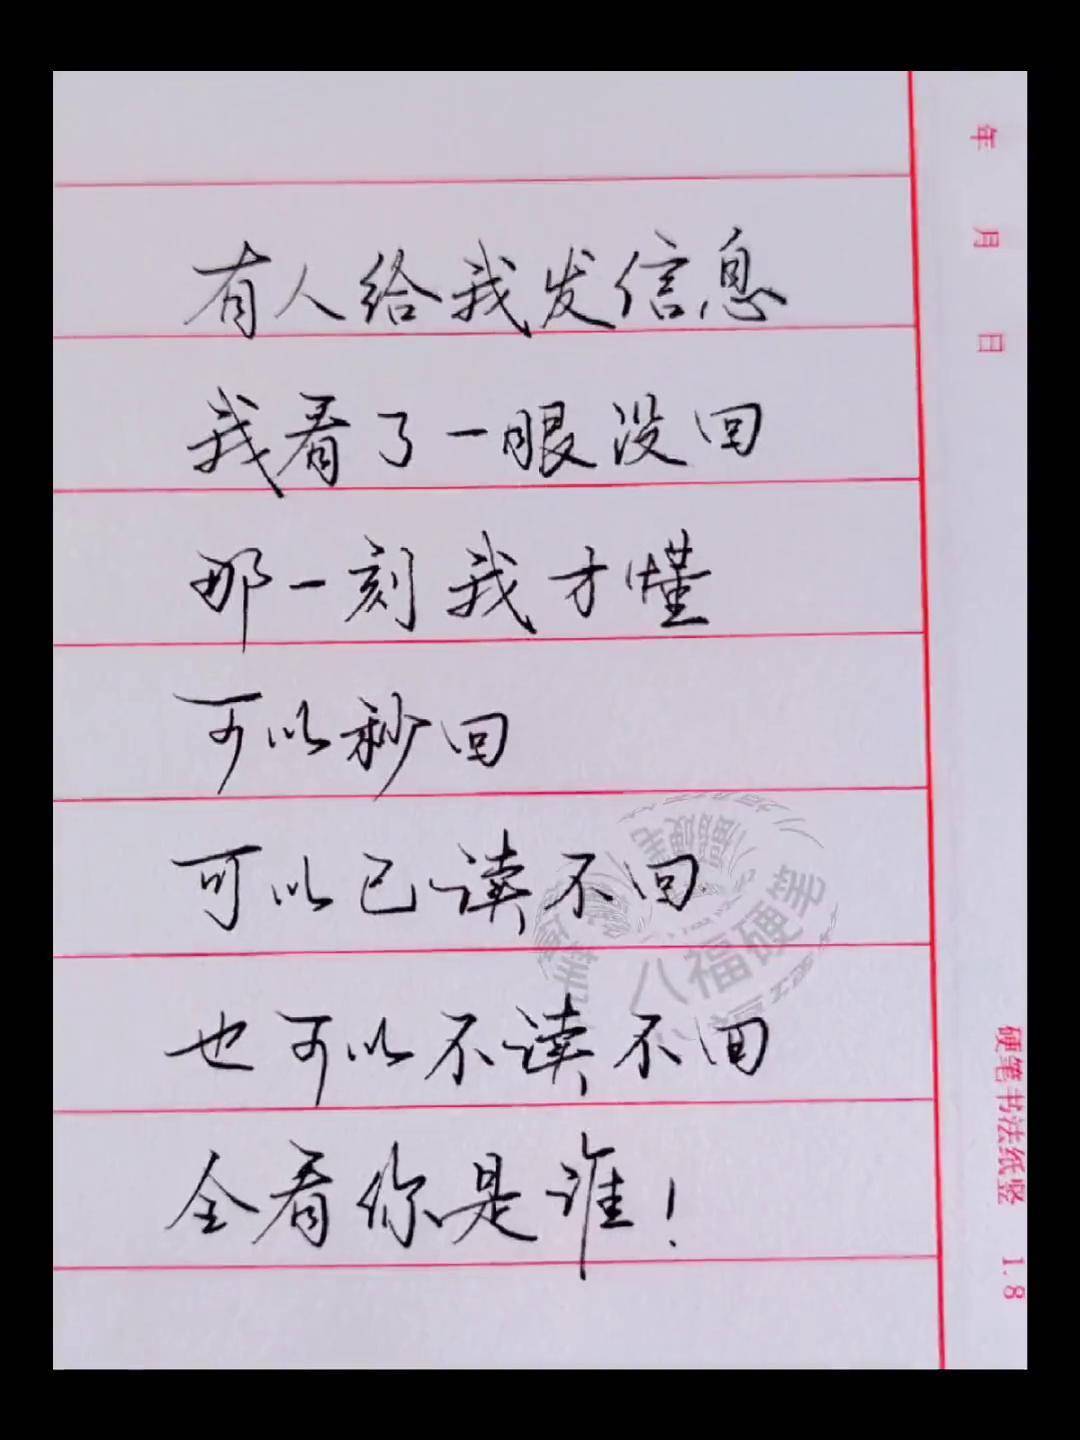 有人给我发信息
我看了一眼没回
那一刻我才懂
可以秒回
可以已读不回
也可以不读不回
全看你是谁！
年 月 日
硬笔书法纸竖 1.8
八福硬笔